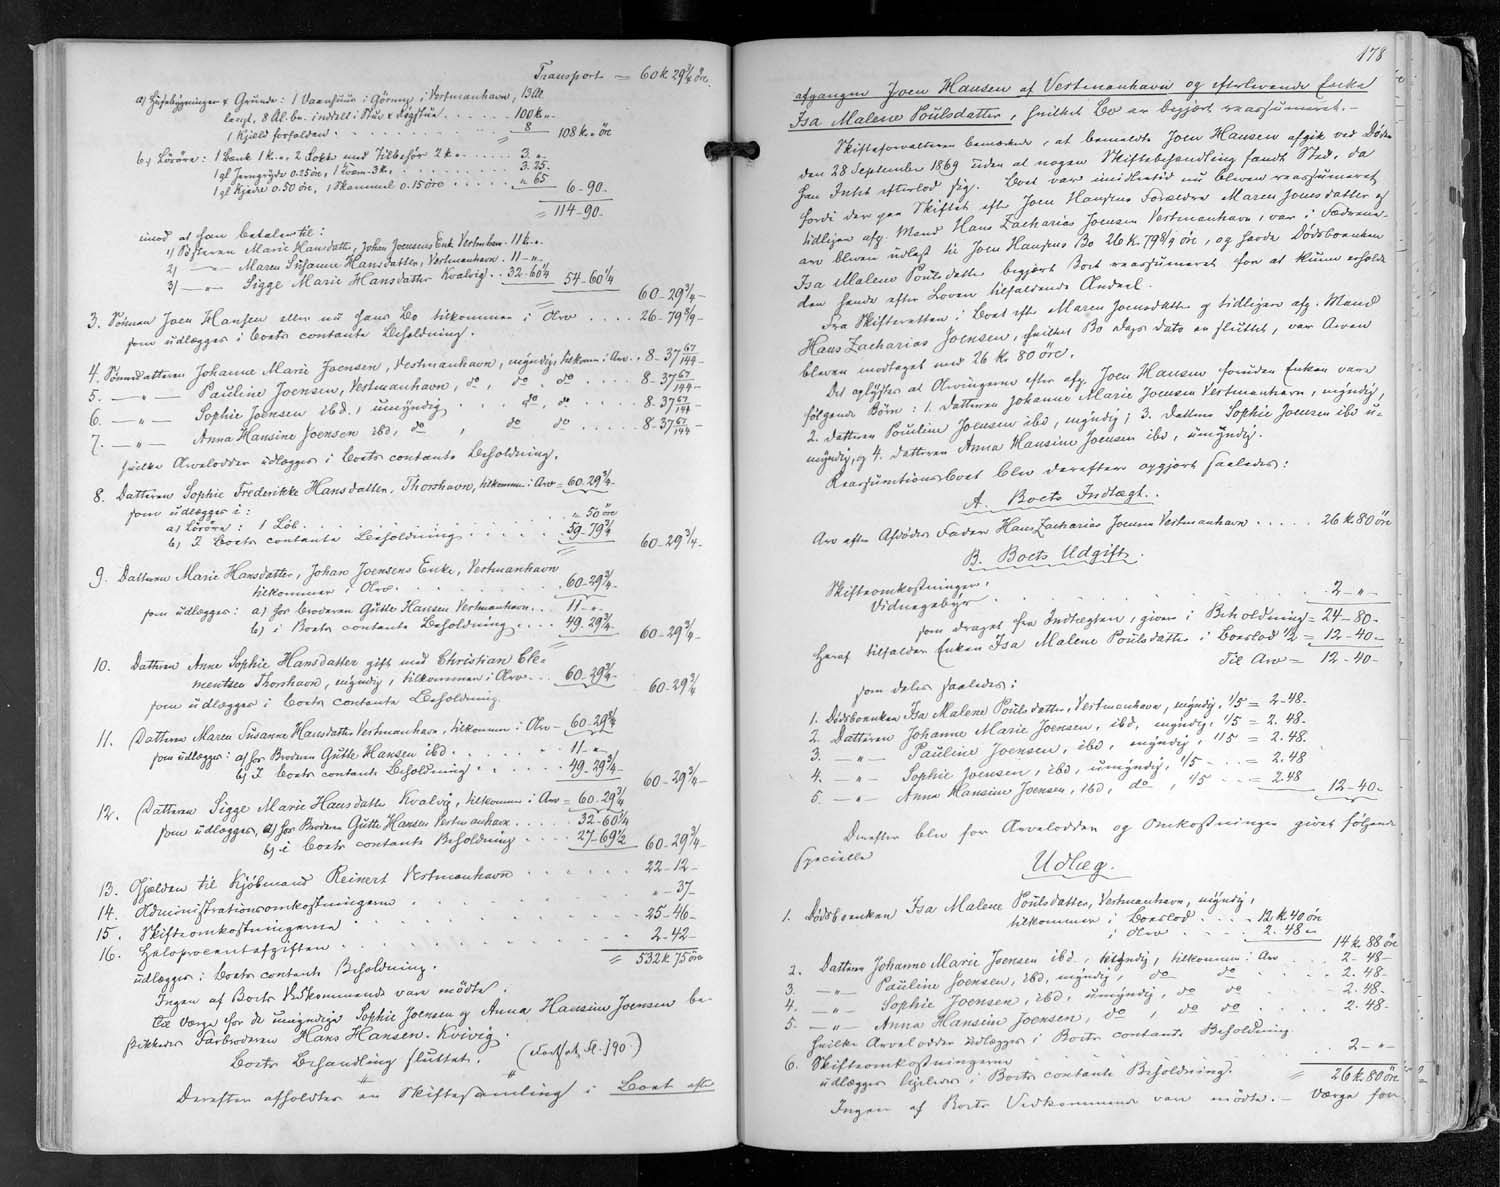 Transport = 60 k 29 3/4 öre
a) Huusbygninger & Grunde: 1 Vaanhuus i Görning i Vestmanhavn, 13 Al.
langt, 8 Al. br. inddelt i Stue & Røgstue . . . . . 100 k „ -
1 Kjeld forfalden . . . . . . . 8 108 k „ öre
b) Lösöre: 1 Bænk 1 k „, 2 Sokt med Tilbehör 2 k „ . . . . 3. „
1 gl Jerngryde 0.25 öre, 1 Kværn 3 k . . . . . 3. 25.
1 gl Kjede 0.50 öre, 1 Skammel 0.15 öre . . . . „ 65 6 - 90 -
= 114 - 90 -
imod at han betaler til:
1) Søsteren Marie Hansdatter, Johan Joensens Enk Vestmhvn. 11 k „
2) — „ — Maren Susanne Hansdatter, Vestmanhavn . 11 - „
3) — „ — Sigge Marie Hansdatter Kvalvig . . 32 - 60 1/4 54 - 60 1/4
60 - 29 3/4 -
3. Sønnen Joen Hansen eller nu hans Bo tilkommer i Arv . . . . 26 - 79 8/9 -
som udlægges i Boets contante Beholdning.
4. Sønnedatteren Johanne Marie Joensen, Vestmanhavn, myndig, tilkom i Arv . 8 - 37 67/144 -
5. — „ — Pauline Joensen, Vestmanhavn, do, do, do . . . . 8 - 37 67/144 -
6. — „ — Sophie Joensen ibd., umyndig . . do, do . . . . 8 - 37 67/144 -
7. — „ — Anna Hansine Joensen ibd, do , do do . . . . 8 - 37 67/144 -
hvilke Arvelodder udlægges i Boets contante Beholdning.
8. Datteren Sophie Frederikke Hansdatter, Thorshavn, tilkommer i Arv = 60 - 29 3/4 -
som udlægges i:
a) Lösöre: 1 Löb . . . . . . „ 50 öre
b) I Boets contante Beholdning . . . . 59 - 79 3/4 60 - 29 3/4 -
9. Datteren Marie Hansdatter, Johan Joensens Enke, Vestmanhavn
tilkommer i Arv . . . . . . 60 - 29 3/4 -
som udlægges: a) hos Broderen Gutte Hansen Vestmanhavn . . . 11 - „ -
b) i Boets contante Beholdning . . . 49 - 29 3/4 - 60 - 29 3/4 -
10. Datteren Anne Sophie Hansdatter gift med Christian Cle-
mentsen Thorshavn, myndig, tilkommer i Arv . . . 60 - 29 3/4 - 60 - 29 3/4
som udlægges i Boets contante Beholdning.
11. Datteren Maren Susanne Hansdatter Vestmanhavn, tilkommer i Arv - 60 - 29 3/4 -
som udlægges: a) hos Broderen Gutte Hansen ibd . . . . 11 - „
b) I Boets contante Beholdning . . . . 49 - 29 3/4 - 60 - 29 3/4 -
12. Datteren Sigge Marie Hansdatter Kvalvig, tilkommer i Arv = 60 - 29 3/4
som udlægges, a) hos Broderen Gutte Hansen Vestmanhavn . . . . 32 - 60 1/4
b) i Boets contante Beholdning . . . 27 - 69 1/2 60 - 29 3/4 -
13. Gjælden til Kjöbmand Reinert Vestmanhavn . . . . . . 22 - 12 -
14. Administrationsomkostningerne . . . . . . „ - 37 -
15. Skifteomkostningerne . . . . . . 25 - 46 -
16. Halvprocentafgiften . . . . . . 2 - 42 -
udlægges i Boets contante Beholdning. = 532 k 75 öre
Ingen af Boets Vedkommende vare mødte.
Til Værge for de umyndige Sophie Joensen og Anna Hansine Joensen be-
skikkedes Farbroderen Hans Hansen Kvivig.
Boets Behandling sluttet. (Fortsat, Fl. 190.)
Derefter afholdtes en Skiftesamling i Boet efter
178
afgangne Joen Hansen af Vestmanhavn og efterlevende Enke
Isa Malene Poulsdatter, hvilket Bo er begjært reassumeret. —
Skifteforvalteren bemærkede, at bemeldte Joen Hansen afgik ved Døden
den 28 September 1869 uden at nogen Skiftebehandling fandt Sted, da
han Intet efterlod sig. Boet var imidlertid nu bleven reassumeret
fordi der paa Skiftet efter Joen Hansens Forældre Maren Joensdatter og
tidligere afg. Mand Hans Zacharias Joensen Vestmanhavn, var i Fædrene-
arv bleven udlagt til Joen Hansens Bo 26 k. 79 8/9 öre, og havde Dødsboenken
Isa Malene Poulsdatter begjært Boet reassumeret for at kunne erholde
den hende efter Loven tilfaldende Andeel.
Fra Skifteretten i Boet efter Maren Joensdatter og tidligere afg. Mand
Hans Zacharias Joensen, hvilket Bo Dags Dato er sluttet, var Arven
bleven modtaget med 26 k. 80 öre.
Det oplystes at Arvingerne efter afg. Joen Hansen foruden Enken vare
følgende Börn: 1. Datteren Johanne Marie Joensen Vestmanhavn, myndig,
2. Datteren Pauline Joensen ibd, myndig; 3. Datteren Sophie Joensen ibd u-
myndig, og 4. Datteren Anna Hansine Joensen ibd, umyndig.
Reassumtionsboet blev derefter opgjort saaledes:
A. Boets Indtægt.
Arv efter Afdødes Fader Hans Zacharias Joensen Vestmanhavn . . . 26 k. 80 öre
B. Boets Udgift.
Skifteomkostninger,
Vidnegebyr . . . . . . . . 2 - „ -
som draget fra Indtægten, giver i Beholdning = 24 - 80 -
Heraf tilfalder Enken Isa Malene Poulsdatter i Boeslod 1/2 = 12 - 40 -
Til Arv = 12 - 40 -
som deles saaledes:
1. Dødsboenken Isa Malene Poulsdatter, Vestmanhavn, myndig, 1/5 = 2 - 48 -
2. Datteren Johanne Marie Joensen, ibd, myndig, 1/5 = 2. 48 -
3. — „ — Pauline Joensen, ibd, myndig, 1/5 = 2. 48 -
4. — „ — Sophie Joensen, ibd, umyndig, 1/5 - . . = 2. 48
5. — „ — Anna Hansine Joensen, ibd, do , 1/5 - . . = 2. 48 12 - 40 -
Derefter blev for Arvelodden og Omkostninger givet følgende
specielle
Udlæg.
1. Dødsboenken Isa Malene Poulsdatter, Vestmanhavn, myndig,
tilkommer i Boeslod . . . . 12 k 40 öre
i Arv . . . . 2. 48 - 14 k. 88 öre
2. Datteren Johanne Marie Joensen ibd., myndig, tilkommer i Arv . . . 2 - 48 -
3. — „ — Pauline Joensen, ibd, myndig, do do . . . . 2. 48 -
4. — „ — Sophie Joensen, ibd, umyndig, do do . . . . 2. 48 -
5. — „ — Anna Hansine Joensen, do , do do . . . . 2. 48 -
hvilke Arvelodder udlægges i Boets contante Beholdning.
6. Skifteomkostningerne . . . . . . 2 - „ -
udlægges ligeledes i Boets contante Beholdning. = 26 k. 80 öre
Ingen af Boets Vedkommende vare mødte. — Værge for